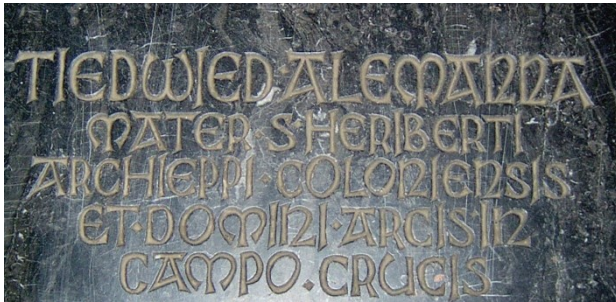 TIEDWIED·ALEMANNA
MATER·S·HERIBERTI
ARCHIEPPI·COLONIENSIS
ET·DOMINI·ARCIS IN
CAMPO·CRUCIS